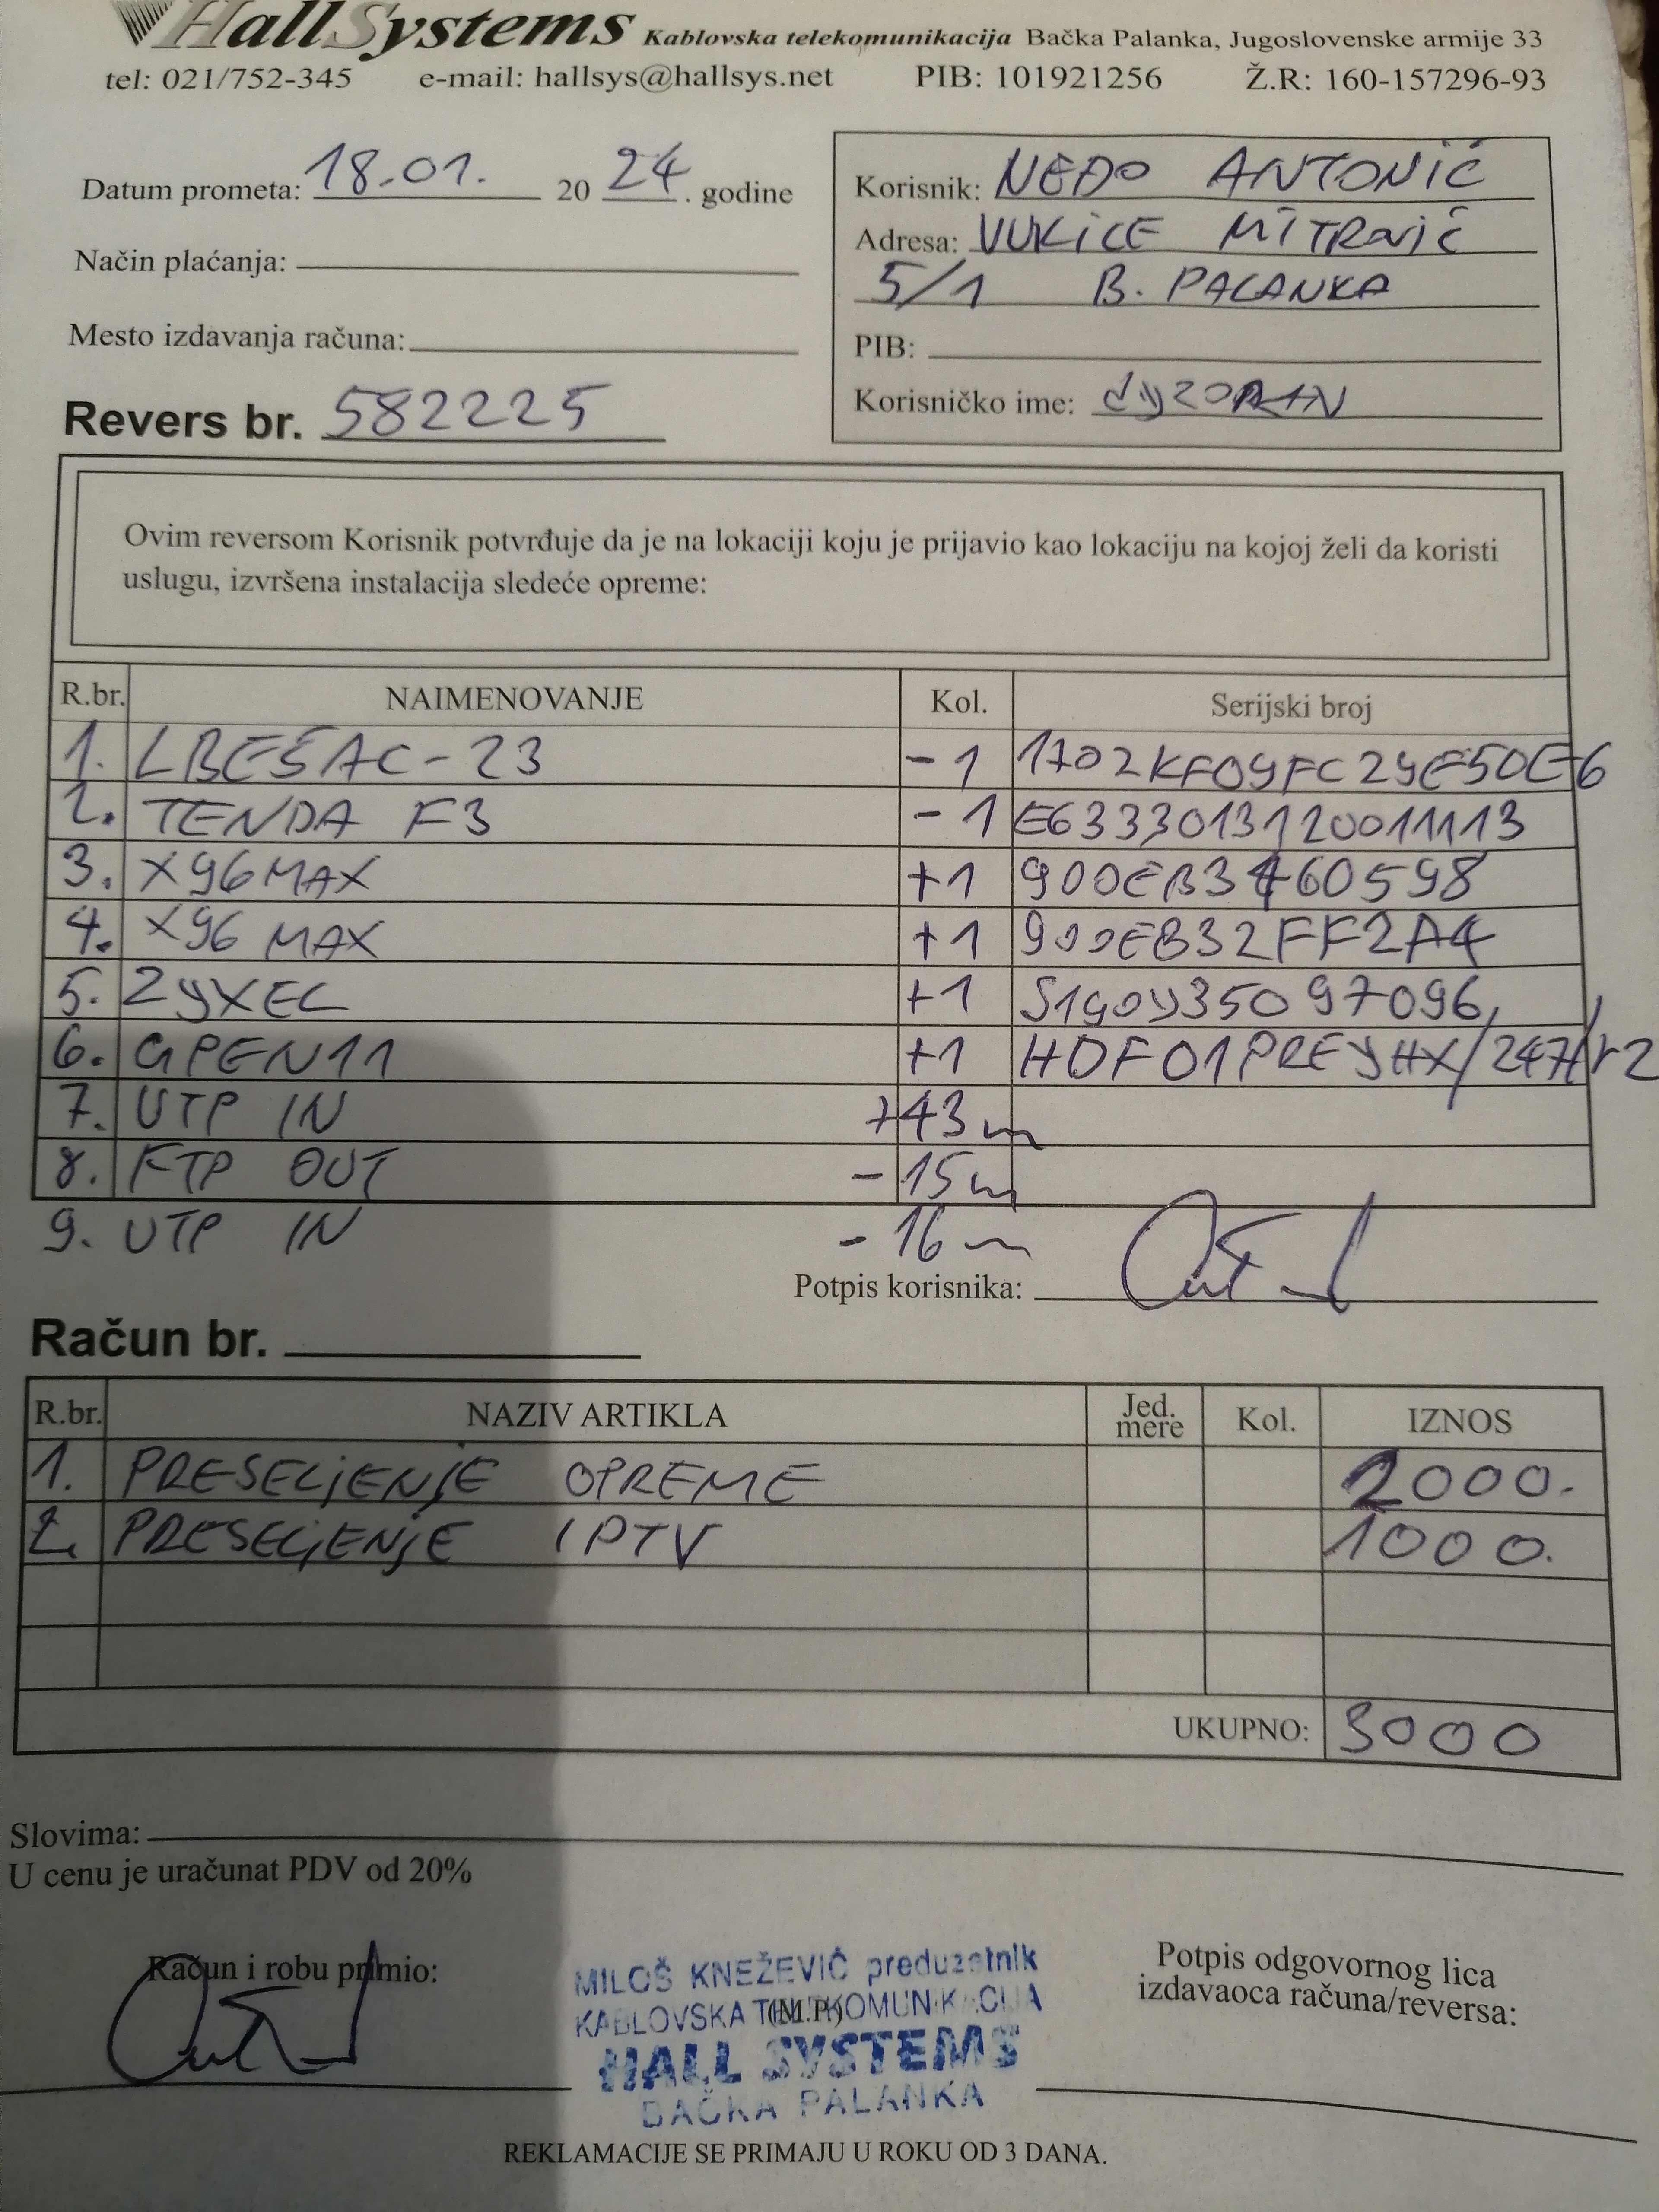 HallSystems Kablovska telekomunikacija Bačka Palanka, Jugoslovenske armije 33
tel: 021/752-345 e-mail: hallsys@hallsys.net PIB: 101921256 Ž.R: 160-157296-93
Datum prometa: 18.01. 2024. godine
Način plaćanja:
Mesto izdavanja računa:
Revers br. 582225
Korisnik: NEĐO ANTONIĆ
Adresa: VUKICE MITROVIĆ
5/1 B. PALANKA
PIB:
Korisničko ime:
Ovim reversom Korisnik potvrđuje da je na lokaciji koju je prijavio kao lokaciju na kojoj želi da koristi
uslugu, izvršena instalacija sledeće opreme:
R.br. NAIMENOVANJE Kol. Serijski broj
1. LBE5AC-23 -1
2. TENDA F3 -1 E6333013120011113
3. X96MAX +1 900EB3460598
4. X96 MAX +1 900EB32FF2A4
5. ZYXEL +1 S190Y35097096
6. GPEN11 +1
7. UTP IN +43m
8. FTP OUT -15m
9. UTP IN -16m
Potpis korisnika:
Račun br.
R.br. NAZIV ARTIKLA Jed. mere Kol. IZNOS
1. PRESELJENJE OPREME 2000.
2. PRESELJENJE IPTV 1000.
UKUPNO: 3000
Slovima:
U cenu je uračunat PDV od 20%
Račun i robu primio:
MILOŠ KNEŽEVIĆ preduzetnik
KABLOVSKA TELEKOMUNIKACIJA
(M.P)
HALL SYSTEMS
BAČKA PALANKA
Potpis odgovornog lica
izdavaoca računa/reversa:
REKLAMACIJE SE PRIMAJU U ROKU OD 3 DANA.